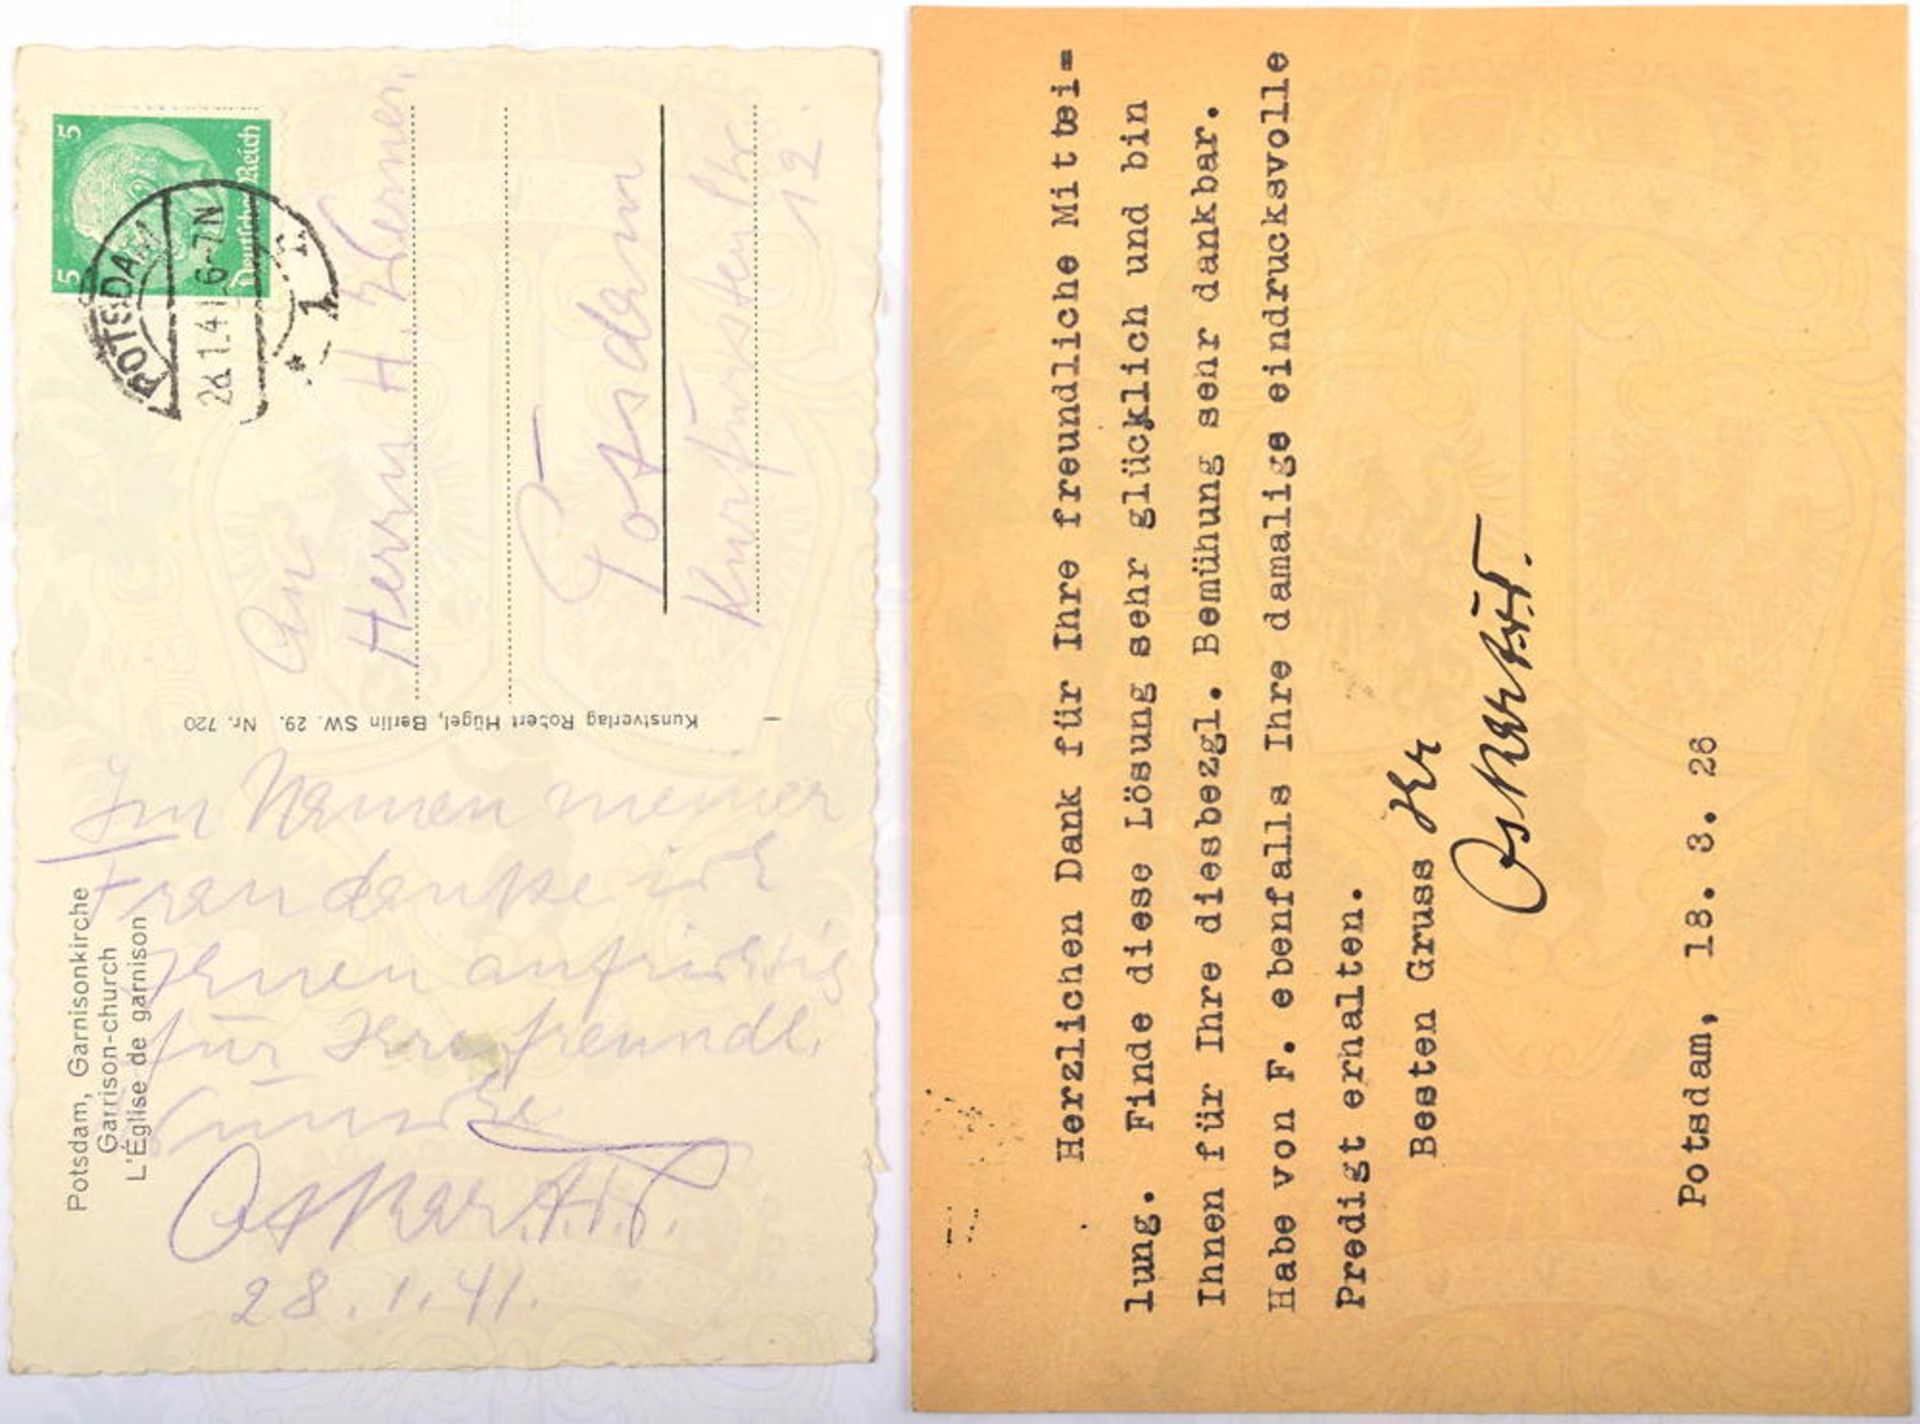 Potsdam, Garnisonkirche
Garrison-church
L'Église de garnison
Im Namen meiner
Frau danke ich
Ihnen aufrichtig
für Ihre freundl.
Oskar
28.1.41.
Kunstverlag Robert Hügel, Berlin SW. 29. Nr. 720
5 5
Deutsches Reich
POTSDAM
28.1.41 6-7N
1
An
Herrn H. Werner
Potsdam
Kurfürsten Str
12
Herzlichen Dank für Ihre freundliche Mittei=
lung. Finde diese Lösung sehr glücklich und bin
Ihnen für Ihre diesbezgl. Bemühung sehr dankbar.
Habe von F. ebenfalls Ihre damalige eindrucksvolle
Predigt erhalten.
Besten Gruss Ihr
Oskar
Potsdam, 18. 3. 26